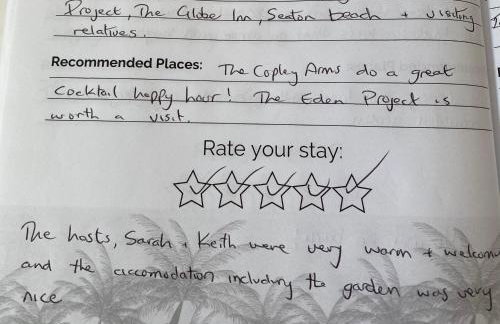 Project, The Globe Inn, Seaton beach + visiting
relatives.
Recommended Places: The Copley Arms do a great
Cocktail happy hour! The Eden Project is
worth a visit.
Rate your stay:
The hosts, Sarah + Keith were very warm + welcom
and the accomodation including the garden was very
nice